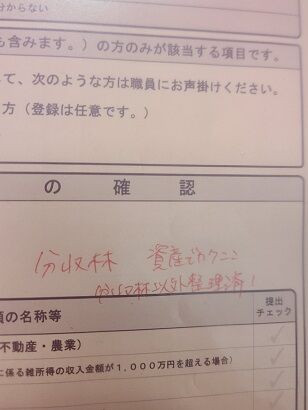 分からない
も含みます。）の方のみが該当する項目です。
て、次のような方は職員にお声掛けください。
方（登録は任意です。）
の確認
分収林 資産でカクニン
分収林以外整理済！
類の名称等
提出
チェック
不動産・農業）
に係る雑所得の収入金額が１,０００万円を超える場合）